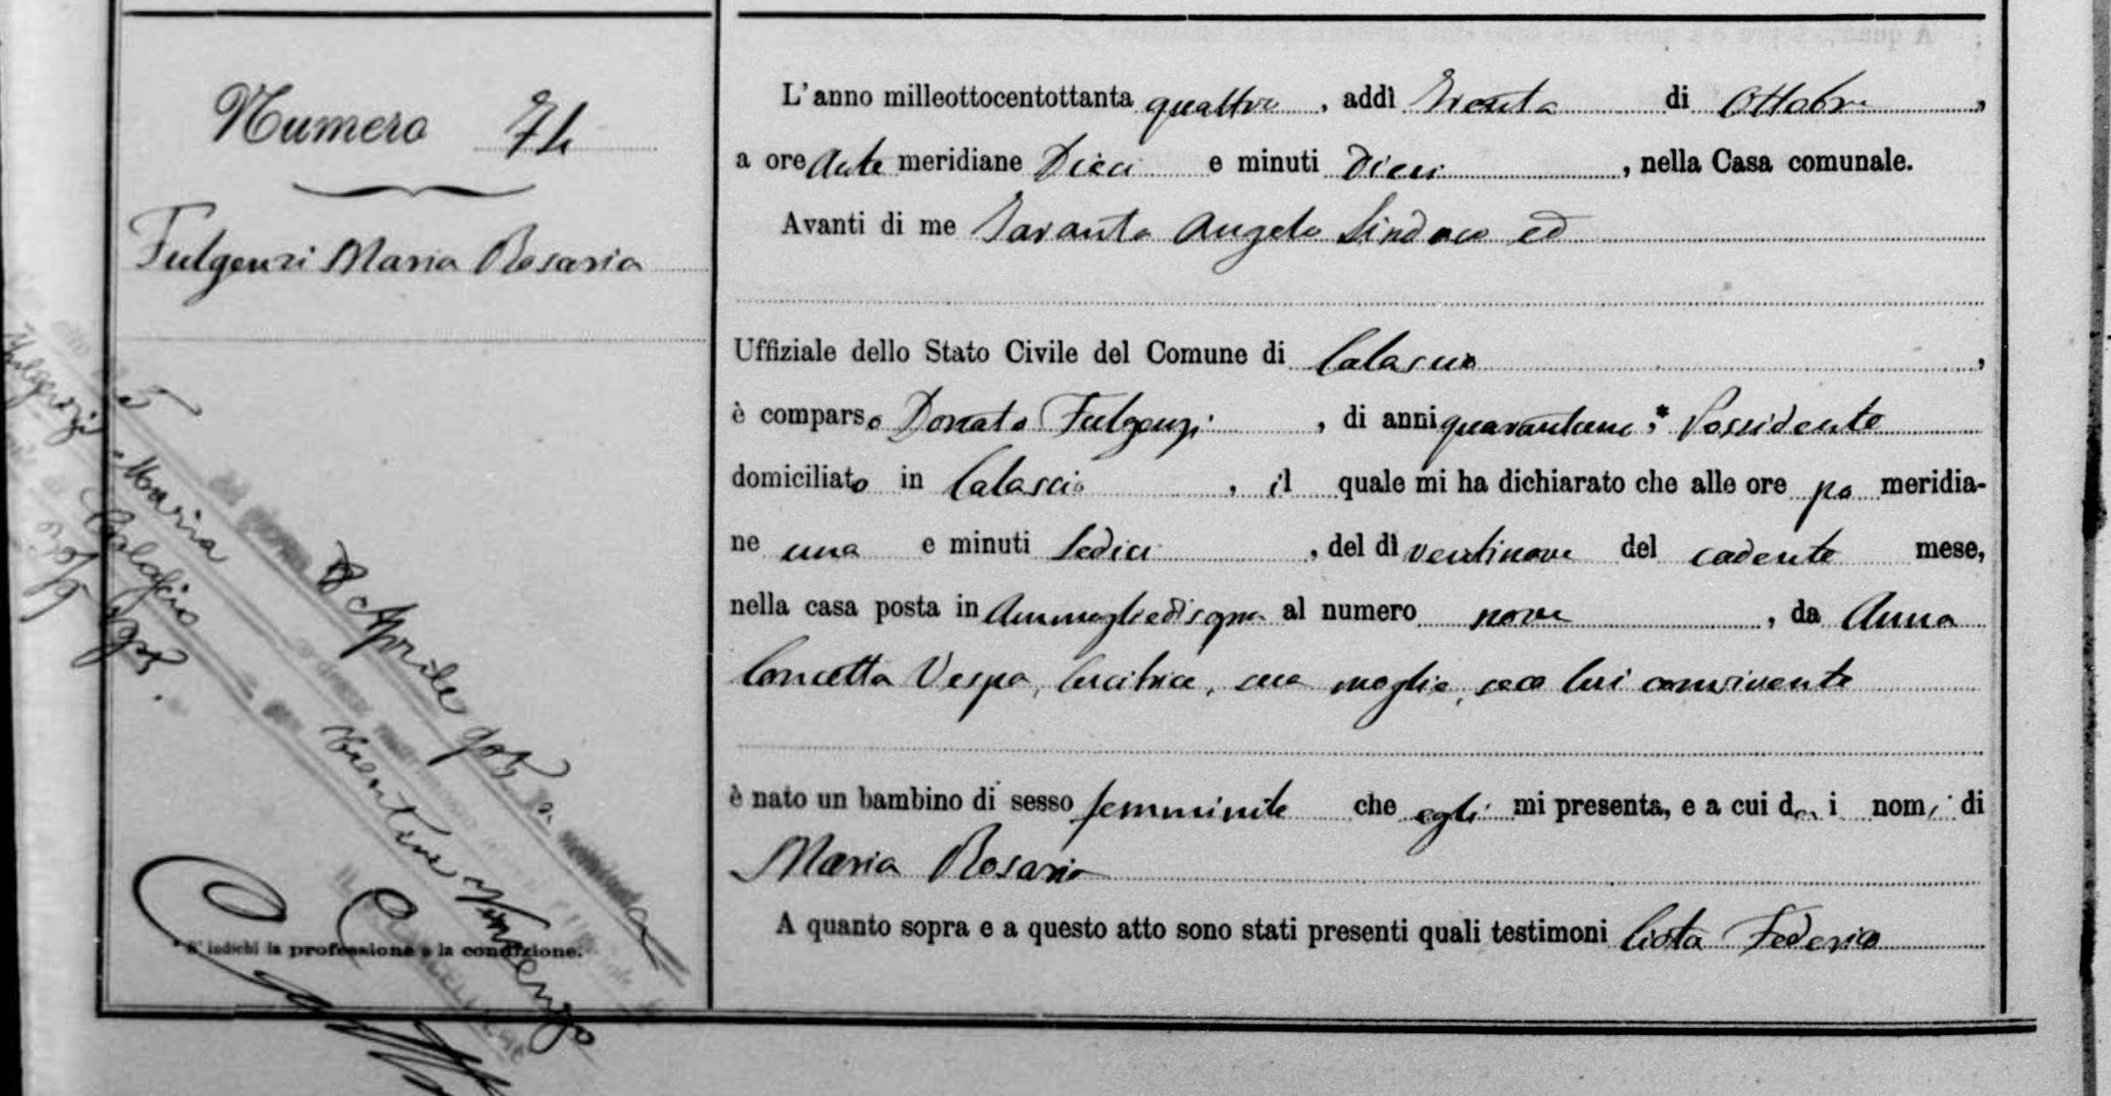 Numero 74
Fulgenzi Maria Rosaria
L'anno milleottocentottanta quattro, addì trenta di Ottobre,
a ore ante meridiane Dieci e minuti Dieci, nella Casa comunale.
Avanti di me Taranta Angelo Sindaco ed
Uffiziale dello Stato Civile del Comune di Calascio,
è comparso Donato Fulgenzi, di anni quarantuno,* Possidente
domiciliato in Calascio, il quale mi ha dichiarato che alle ore po meridia-
ne una e minuti sedici, del dì ventinove del cadente mese,
nella casa posta in al numero nove, da Anna
Concetta Vespa, Cucitrice, sua moglie, seco lui convivente
è nato un bambino di sesso femminile che egli mi presenta, e a cui dà i nomi di
Maria Rosaria
A quanto sopra e a questo atto sono stati presenti quali testimoni Ciota Federico
Fulgenzi Maria
Calascio
8 Aprile 905
Vincenzo
* S'indichi la professione o la condizione.